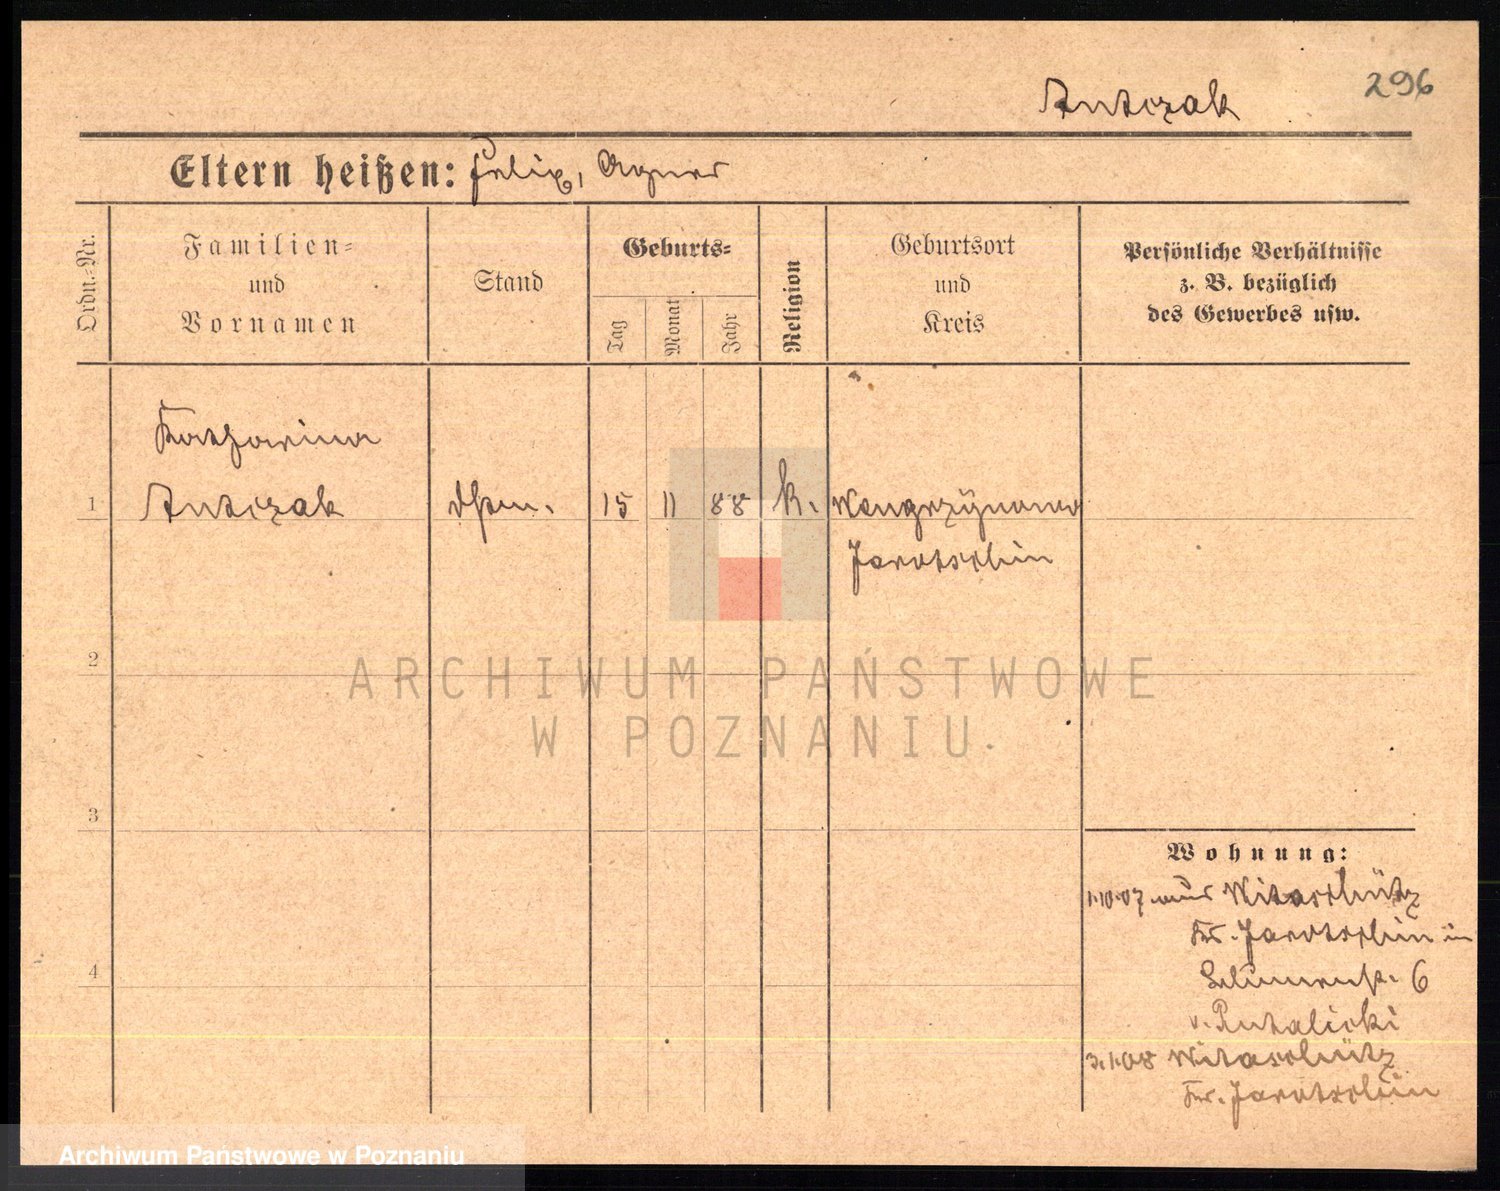 Antczak
296
Eltern heißen: Felix, Agnes
Ordn.-Nr.
Familien-
und
Vornamen
Stand
Geburts-
Tag
Monat
Jahr
Religion
Geburtsort
und
Kreis
Persönliche Verhältnisse
z. B. bezüglich
des Gewerbes usw.
Katharina
1 Antczak 15 11 88 k.
Jarotschin
2
3
4
ARCHIWUM PAŃSTWOWE
W POZNANIU
Wohnung:
1.10.07 aus Witaschütz
Kr. Jarotschin in
Blumenstr. 6
v.
3.1.08 Witaschütz
Kr. Jarotschin
Archiwum Państwowe w Poznaniu